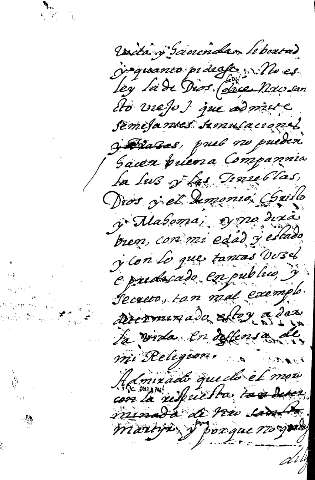 vida y hacienda libertad
y quanto pidiese. No es
ley la de Dios (dice Nro san
to viejo) que admite
semejantes simulaciones
y pues no pueden
hacer buena Compannia
la luz y las Tinieblas,
Dios y el demonio, Christo
y Mahoma; ny no dirá
bien, con mi edad y estado
y con lo que tantas vezes
e predicado en publico, y
secreto, tan mal exemplo
determinado estoy a dar
la vida en deffensa de
mi Religion.
Admirado quedo el moro
con la respuesta
de nro
martyr, y porque no